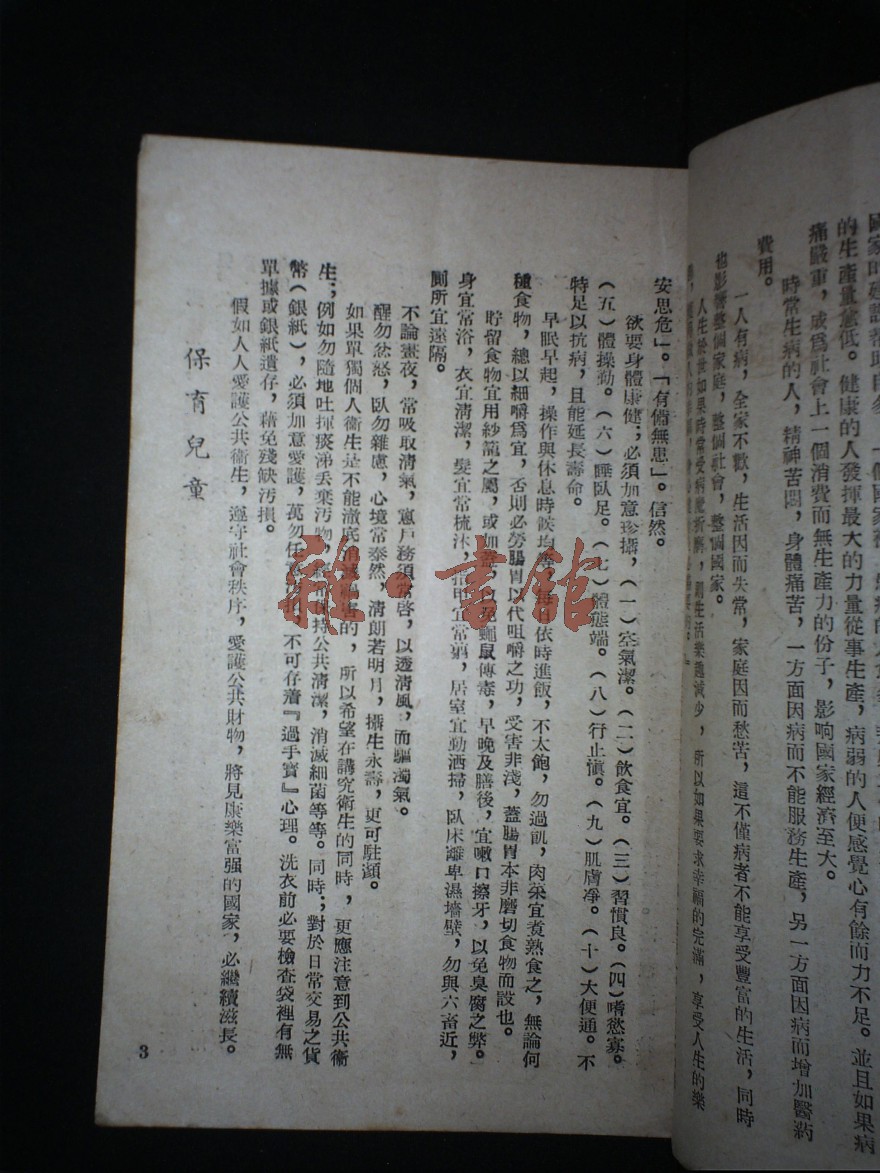 的生產量愈低。健康的人發揮最大的力量從事生產，病弱的人便感覺心有餘而力不足。並且如果病
痛嚴重，成爲社會上一個消費而無生產力的份子，影响國家經濟至大。
時常生病的人，精神苦悶，身體痛苦，一方面因病而不能服務生產，另一方面因病而增加醫葯
費用。
一人有病，全家不歡，生活因而失常，家庭因而愁苦，這不僅病者不能享受豐富的生活，同時
也影響整個家庭，整個社會，整個國家。
人生於世如果時常受病魔折磨，則生活樂趣減少，所以如果要求幸福的完滿，享受人生的樂
安思危」。「有備無患」。信然。
欲要身體康健；必須加意珍攝，（一）空氣潔。（二）飲食宜。（三）習慣良。（四）嗜慾寡。
（五）體操勤。（六）睡臥足。（七）體態端。（八）行止愼。（九）肌膚凈。（十）大便通。不
特足以抗病，且能延長壽命。
早眠早起，操作與休息時候均等，每日依時進飯，不太飽，勿過飢，肉菜宜煮熟食之，無論何
種食物，總以細嚼爲宜，否則必勞腸胃以代咀嚼之功，受害非淺，蓋腸胃本非磨切食物而設也。
貯留食物宜用紗籠之屬，或加蓋，以免蠅鼠傳毒，早晚及膳後，宜嗽口擦牙，以免臭腐之弊。
身宜常浴，衣宜清潔，髮宜常梳沐，指甲宜常剪，居室宜勤洒掃，臥床離卑濕墻壁，勿與六畜近，
厠所宜遠隔。
不論晝夜，常吸取清氣，窻戶務須常啓，以透淸風，而驅濁氣。
醒勿忿怒，臥勿雜慮，心境常泰然，清朗若明月，攝生永壽，更可駐顏。
如果單獨個人衞生是不能澈底消滅病害的，所以希望在講究衛生的同時，更應注意到公共衞
生；例如勿隨地吐揮痰涕丢棄汚物，務須保持公共清潔，消滅細菌等等。同時；對於日常交易之貨
幣（銀紙），必須加意愛護，萬勿任意汚損，不可存着『過手寳』心理。洗衣前必要檢查袋裡有無
單據或銀紙遺存，藉免殘缺汚損。
假如人人愛護公共衛生，遵守社會秩序，愛護公共財物，將見康樂富强的國家，必繼續滋長。
保育兒童
3
雅·書館